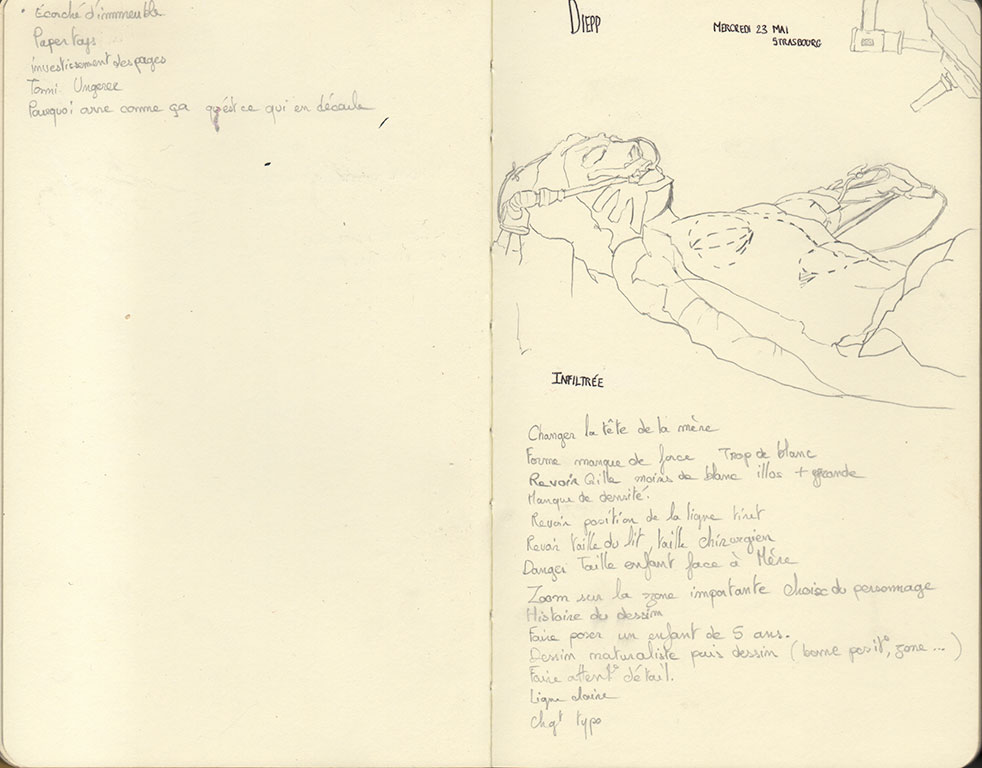 • Ecorché d'immeuble
Papertoys
investissement des pages
Tomi Ungerer
Pourquoi arne comme ça qu'est ce qui en découle
DIEPP
MERCREDI 23 MAI
STRASBOURG
INFILTRÉE
Changer la tête de la mère
Forme manque de force Trop de blanc
Revoir moins de blanc illos + grande
Manque de densité.
Revoir position de la ligne tiret
Revoir taille du lit, taille chirurgien
Danger Taille enfant face à Mère
Zoom sur la zone importante choix du personnage
Histoire du dessin
Faire poser un enfant de 5 ans.
Dessin naturaliste puis dessin (bonne posit°, zone ...)
Faire attent° détail.
Ligne claire
Chgt typo